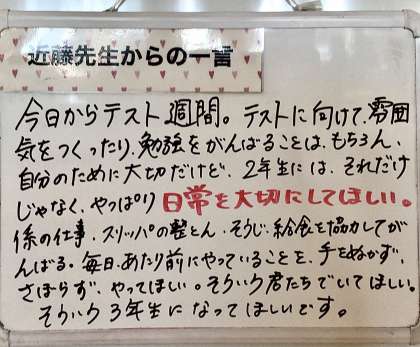 近藤先生からの一言
今日からテスト週間。テストに向けて、雰囲
気をつくったり、勉強をがんばることは、もちろん、
自分のために大切だけど、2年生には、それだけ
じゃなく、やっぱり日常を大切にしてほしい。
係の仕事、スリッパの整とん、そうじ、給食を協力してが
んばる。毎日、あたり前にやっていることを、手をぬかず、
さぼらず、やってほしい。そういう君たちでいてほしい。
そういう3年生になってほしいです。